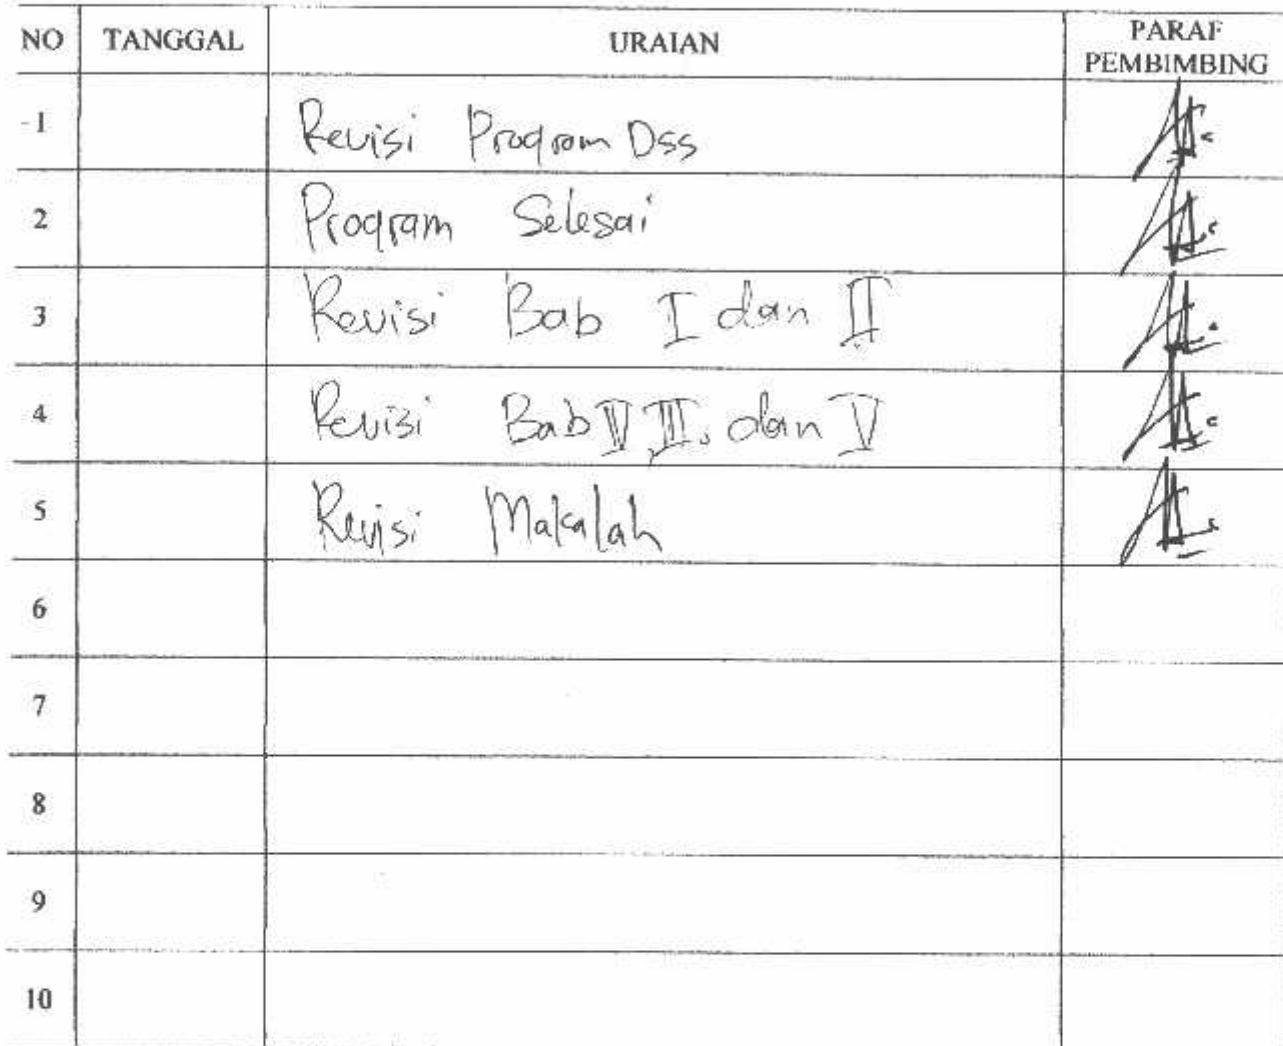 NO TANGGAL URAIAN PARAF PEMBIMBING
1 Revisi Program Dss
2 Program Selesai
3 Revisi Bab I dan II
4 Revisi Bab IV, III, dan V
5 Revisi Makalah
6
7
8
9
10